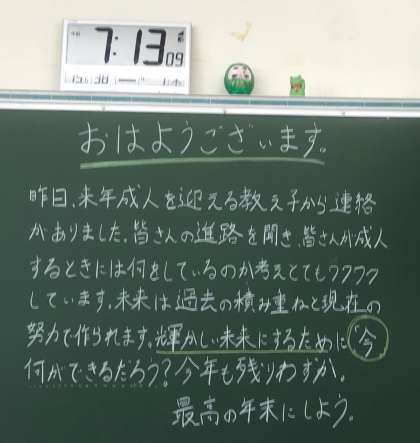 7:13 09
おはようございます。
昨日、来年成人を迎える教え子から連絡
がありました。皆さんの進路を聞き、皆さんが成人
するときには何をしているのか考えとてもワクワク
しています。未来は過去の積み重ねと現在の
努力で作られます。輝かしい未来にするために「今
何ができるだろう?今年も残りわずか。
最高の年末にしよう。